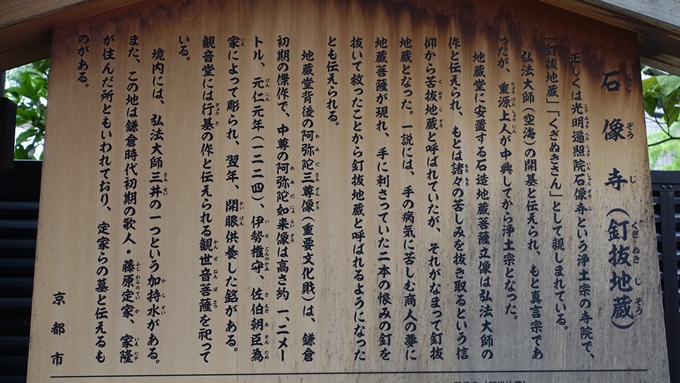 石像寺(釘抜地蔵)
正しくは光明遍照院石像寺という浄土宗の寺院で、
「釘抜地蔵」「くぎぬきさん」として親しまれている。
弘法大師(空海)の開基と伝えられ、もと真言宗であ
ったが、重源上人が中興してから浄土宗となった。
地蔵堂に安置する石造地蔵菩薩立像は弘法大師の
作と伝えられ、もとは諸々の苦しみを抜き取るという信
仰から苦抜地蔵と呼ばれていたが、それがなまって釘抜
地蔵となった。一説には、手の病気に苦しむ商人の夢に
地蔵菩薩が現れ、手に刺さっていた二本の恨みの釘を
抜いて救ったことから釘抜地蔵と呼ばれるようになった
とも伝えられる。
地蔵堂背後の阿弥陀三尊像(重要文化財)は、鎌倉
初期の傑作で、中尊の阿弥陀如来像は高さ約一、二メー
トル、元仁元年(一二二四)、伊勢権守、佐伯朝臣為
家によって彫られ、翌年、開眼供養した銘がある。
観音堂には行基の作と伝えられる観世音菩薩を祀って
いる。
境内には、弘法大師三井の一つという加持水がある。
また、この地は鎌倉時代初期の歌人・藤原定家、家隆
が住んだ所ともいわれており、定家らの墓と伝えるも
のがある。
京都市